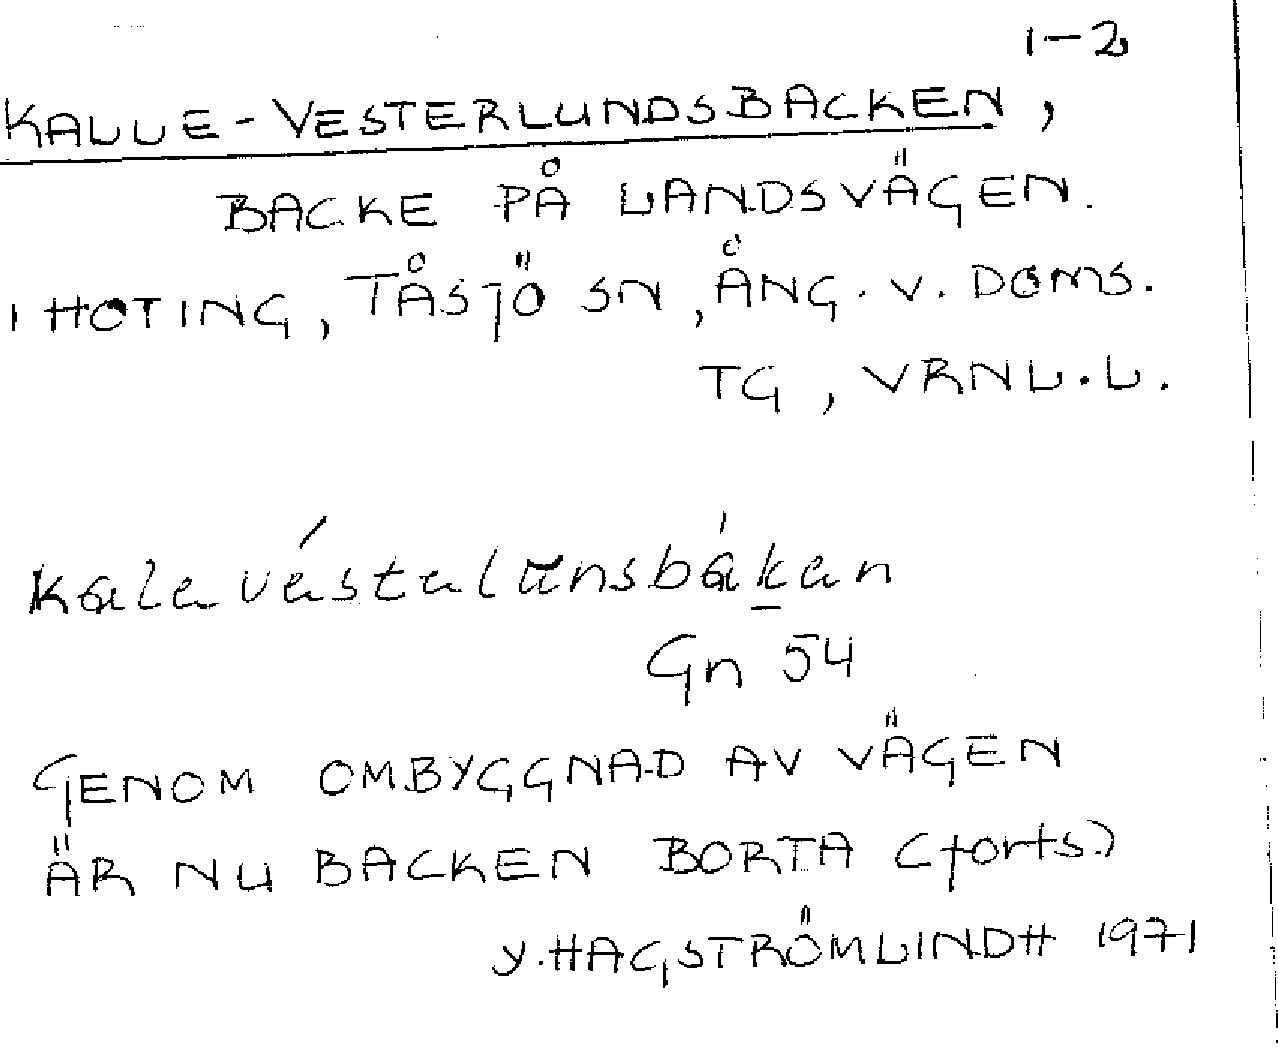 1-2
KALLE-VESTERLUNDSBACKEN,
BACKE PÅ LANDSVÄGEN.
I HOTING, TÅSJÖ SN, ÅNG. V. DOMS.
TG, VRNL.L.
Gn 54
GENOM OMBYGGNAD AV VÄGEN
ÄR NU BACKEN BORTA (forts.)
Y. HAGSTRÖMLINDH 1971